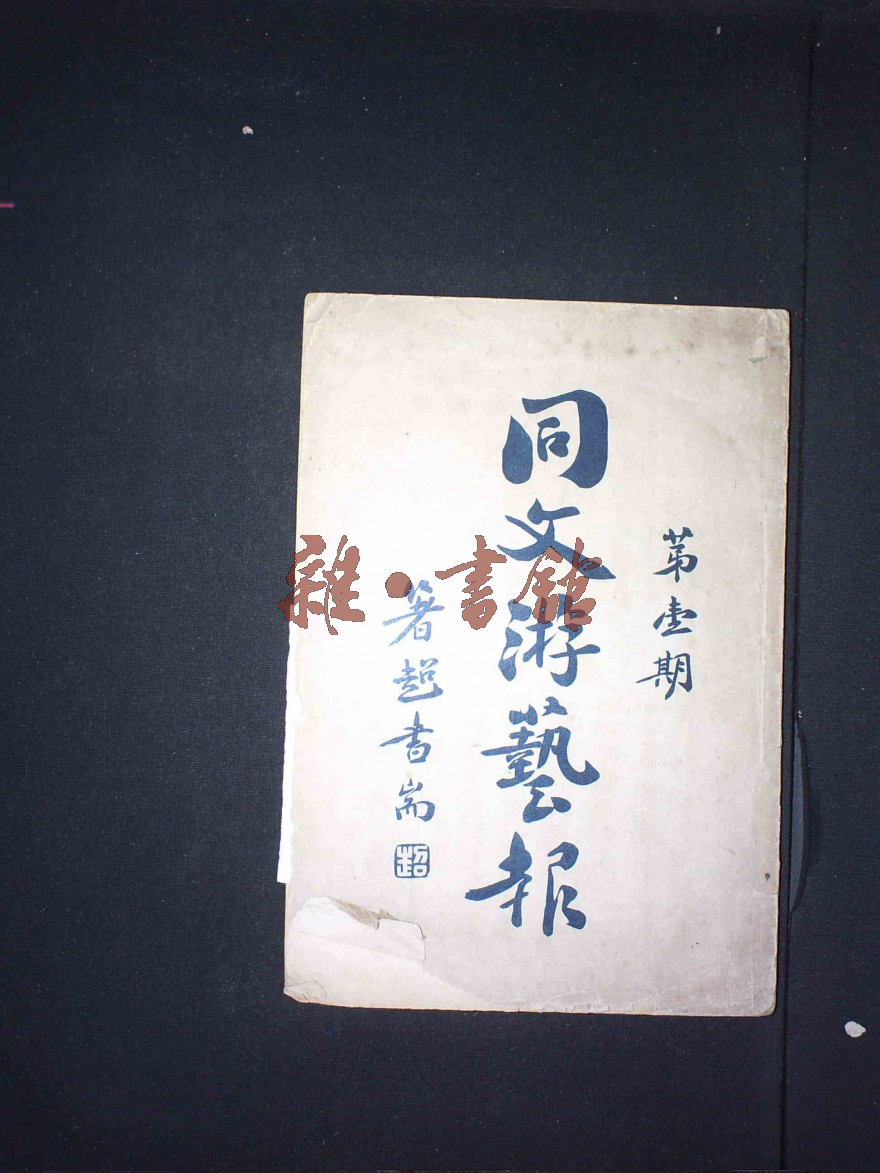 第壹期
同文游藝報
箸超書耑
超
雜·書館